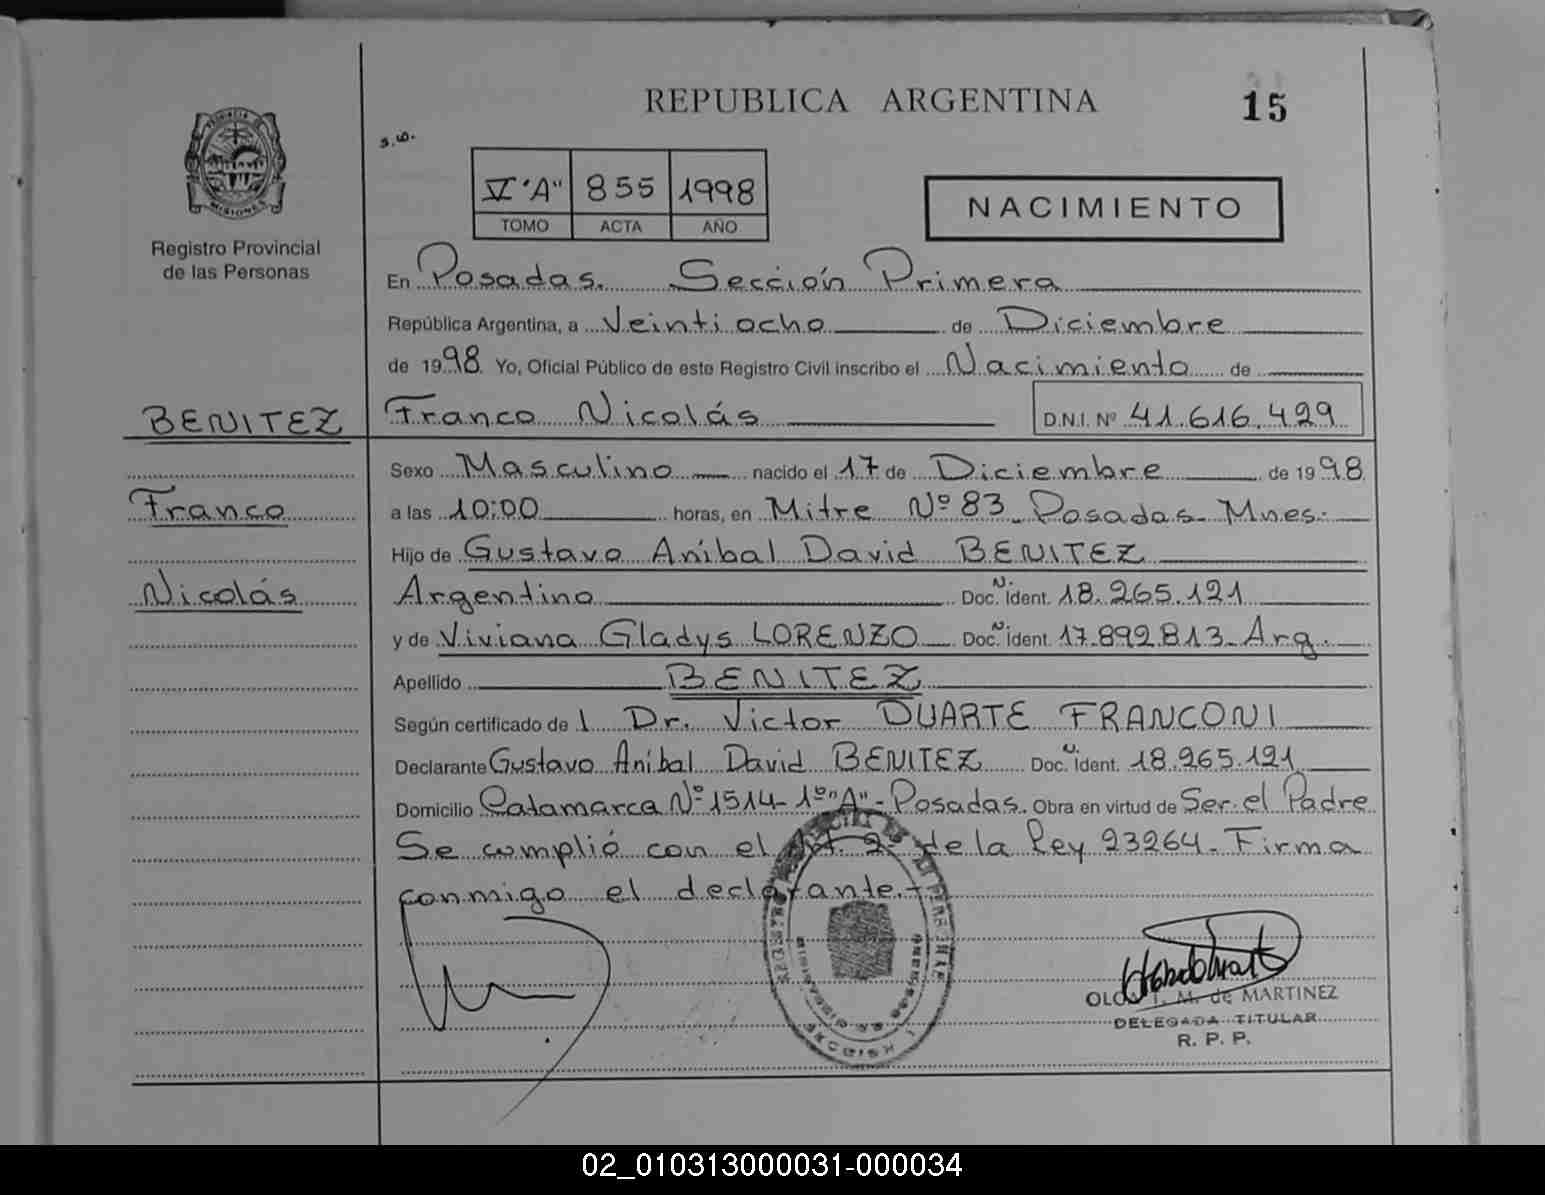 REPUBLICA ARGENTINA
15
PROVINCIA DE
MISIONES
Registro Provincial
de las Personas
s.w.
V "A" 855 1998
TOMO ACTA AÑO
NACIMIENTO
En Posadas. Sección Primera
República Argentina, a Veintiocho de Diciembre
de 1998. Yo, Oficial Público de este Registro Civil inscribo el Nacimiento de
BENITEZ
Franco Nicolás
D.N.I. Nº 41.616.429
Sexo Masculino nacido el 17 de Diciembre de 1998
Franco
a las 10:00 horas, en Mitre Nº 83 - Posadas - Mnes.
Hijo de Gustavo Aníbal David BENITEZ
Nicolás
Argentino Doc. N. Ident. 18.265.121
y de Viviana Gladys LORENZO Doc. N. Ident. 17.892.813 - Arg.
Apellido BENITEZ
Según certificado de l Dr. Victor DUARTE FRANCONI
Declarante Gustavo Aníbal David BENITEZ Doc. N. Ident. 18.265.121
Domicilio Catamarca Nº 1514 - 1º "A" - Posadas. Obra en virtud de Ser el Padre
Se cumplió con el Art. 2º de la Ley 23264 - Firma
conmigo el declarante.-
T. M. de MARTINEZ
DELEGADA TITULAR
R. P. P.
02_010313000031-000034